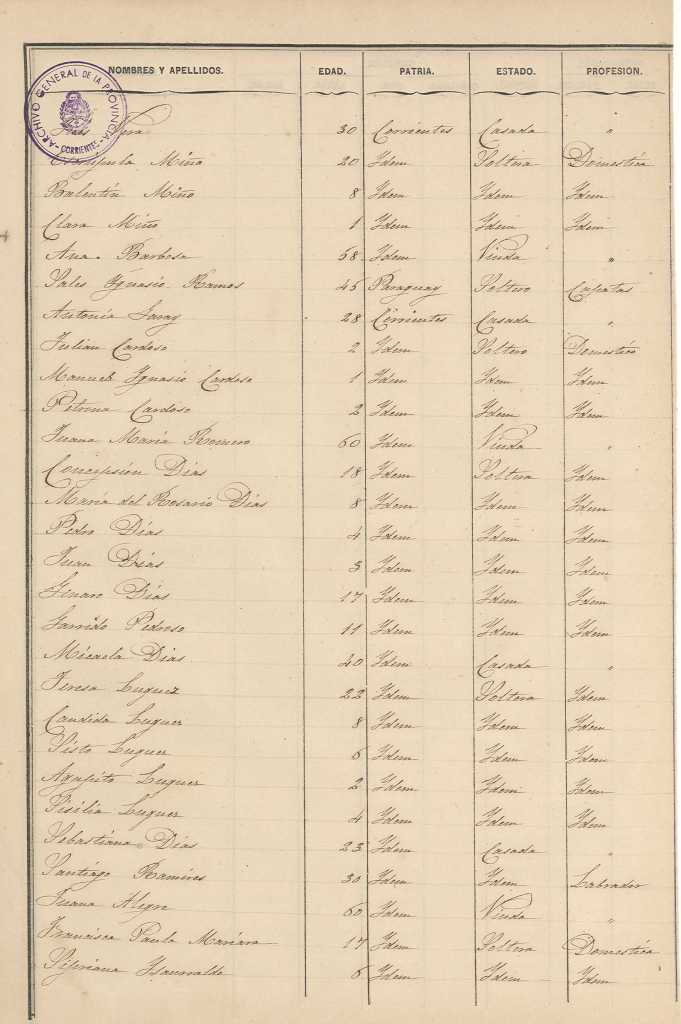 NOMBRES Y APELLIDOS. EDAD. PATRIA. ESTADO. PROFESIÓN.
ARCHIVO GENERAL DE LA PROVINCIA CORRIENTES
Vera 30 Corrientes Casada "
Miño 20 Ydem Soltera Domestica
Balentín Miño 8 Ydem Ydem Ydem
Clara Miño 1 Ydem Ydem Ydem
Ana Barbosa 58 Ydem Viuda "
Sales Ygnasio Ramos 45 Paraguay Soltero Capatas
Antonia 28 Corrientes Casada "
Julian Cardoso 2 Ydem Soltero Domestico
Manuel Ygnasio Cardoso 1 Ydem Ydem Ydem
Petrona Cardoso 2 Ydem Ydem Ydem
Juana María Romero 60 Ydem Viuda "
Concepsión Días 18 Ydem Soltera Ydem
María del Rosario Días 8 Ydem Ydem Ydem
Pedro Días 4 Ydem Ydem Ydem
Juan Días 3 Ydem Ydem Ydem
Genaro Días 17 Ydem Ydem Ydem
Garrido Pedroso 11 Ydem Ydem Ydem
Micaela Dias 40 Ydem Casada "
Teresa Luguez 22 Ydem Soltera Ydem
Candida Luguez 8 Ydem Ydem Ydem
Sisto Luguez 6 Ydem Ydem Ydem
Agapito Luguez 2 Ydem Ydem Ydem
Sisilia Luguez 4 Ydem Ydem Ydem
Sebastiana Días 23 Ydem Casada "
Santiago Ramires 30 Ydem Ydem Labrador
Juana Alegre 60 Ydem Viuda "
Francisca Paula 17 Ydem Soltera Domestica
Ysaurralde 6 Ydem Ydem Ydem